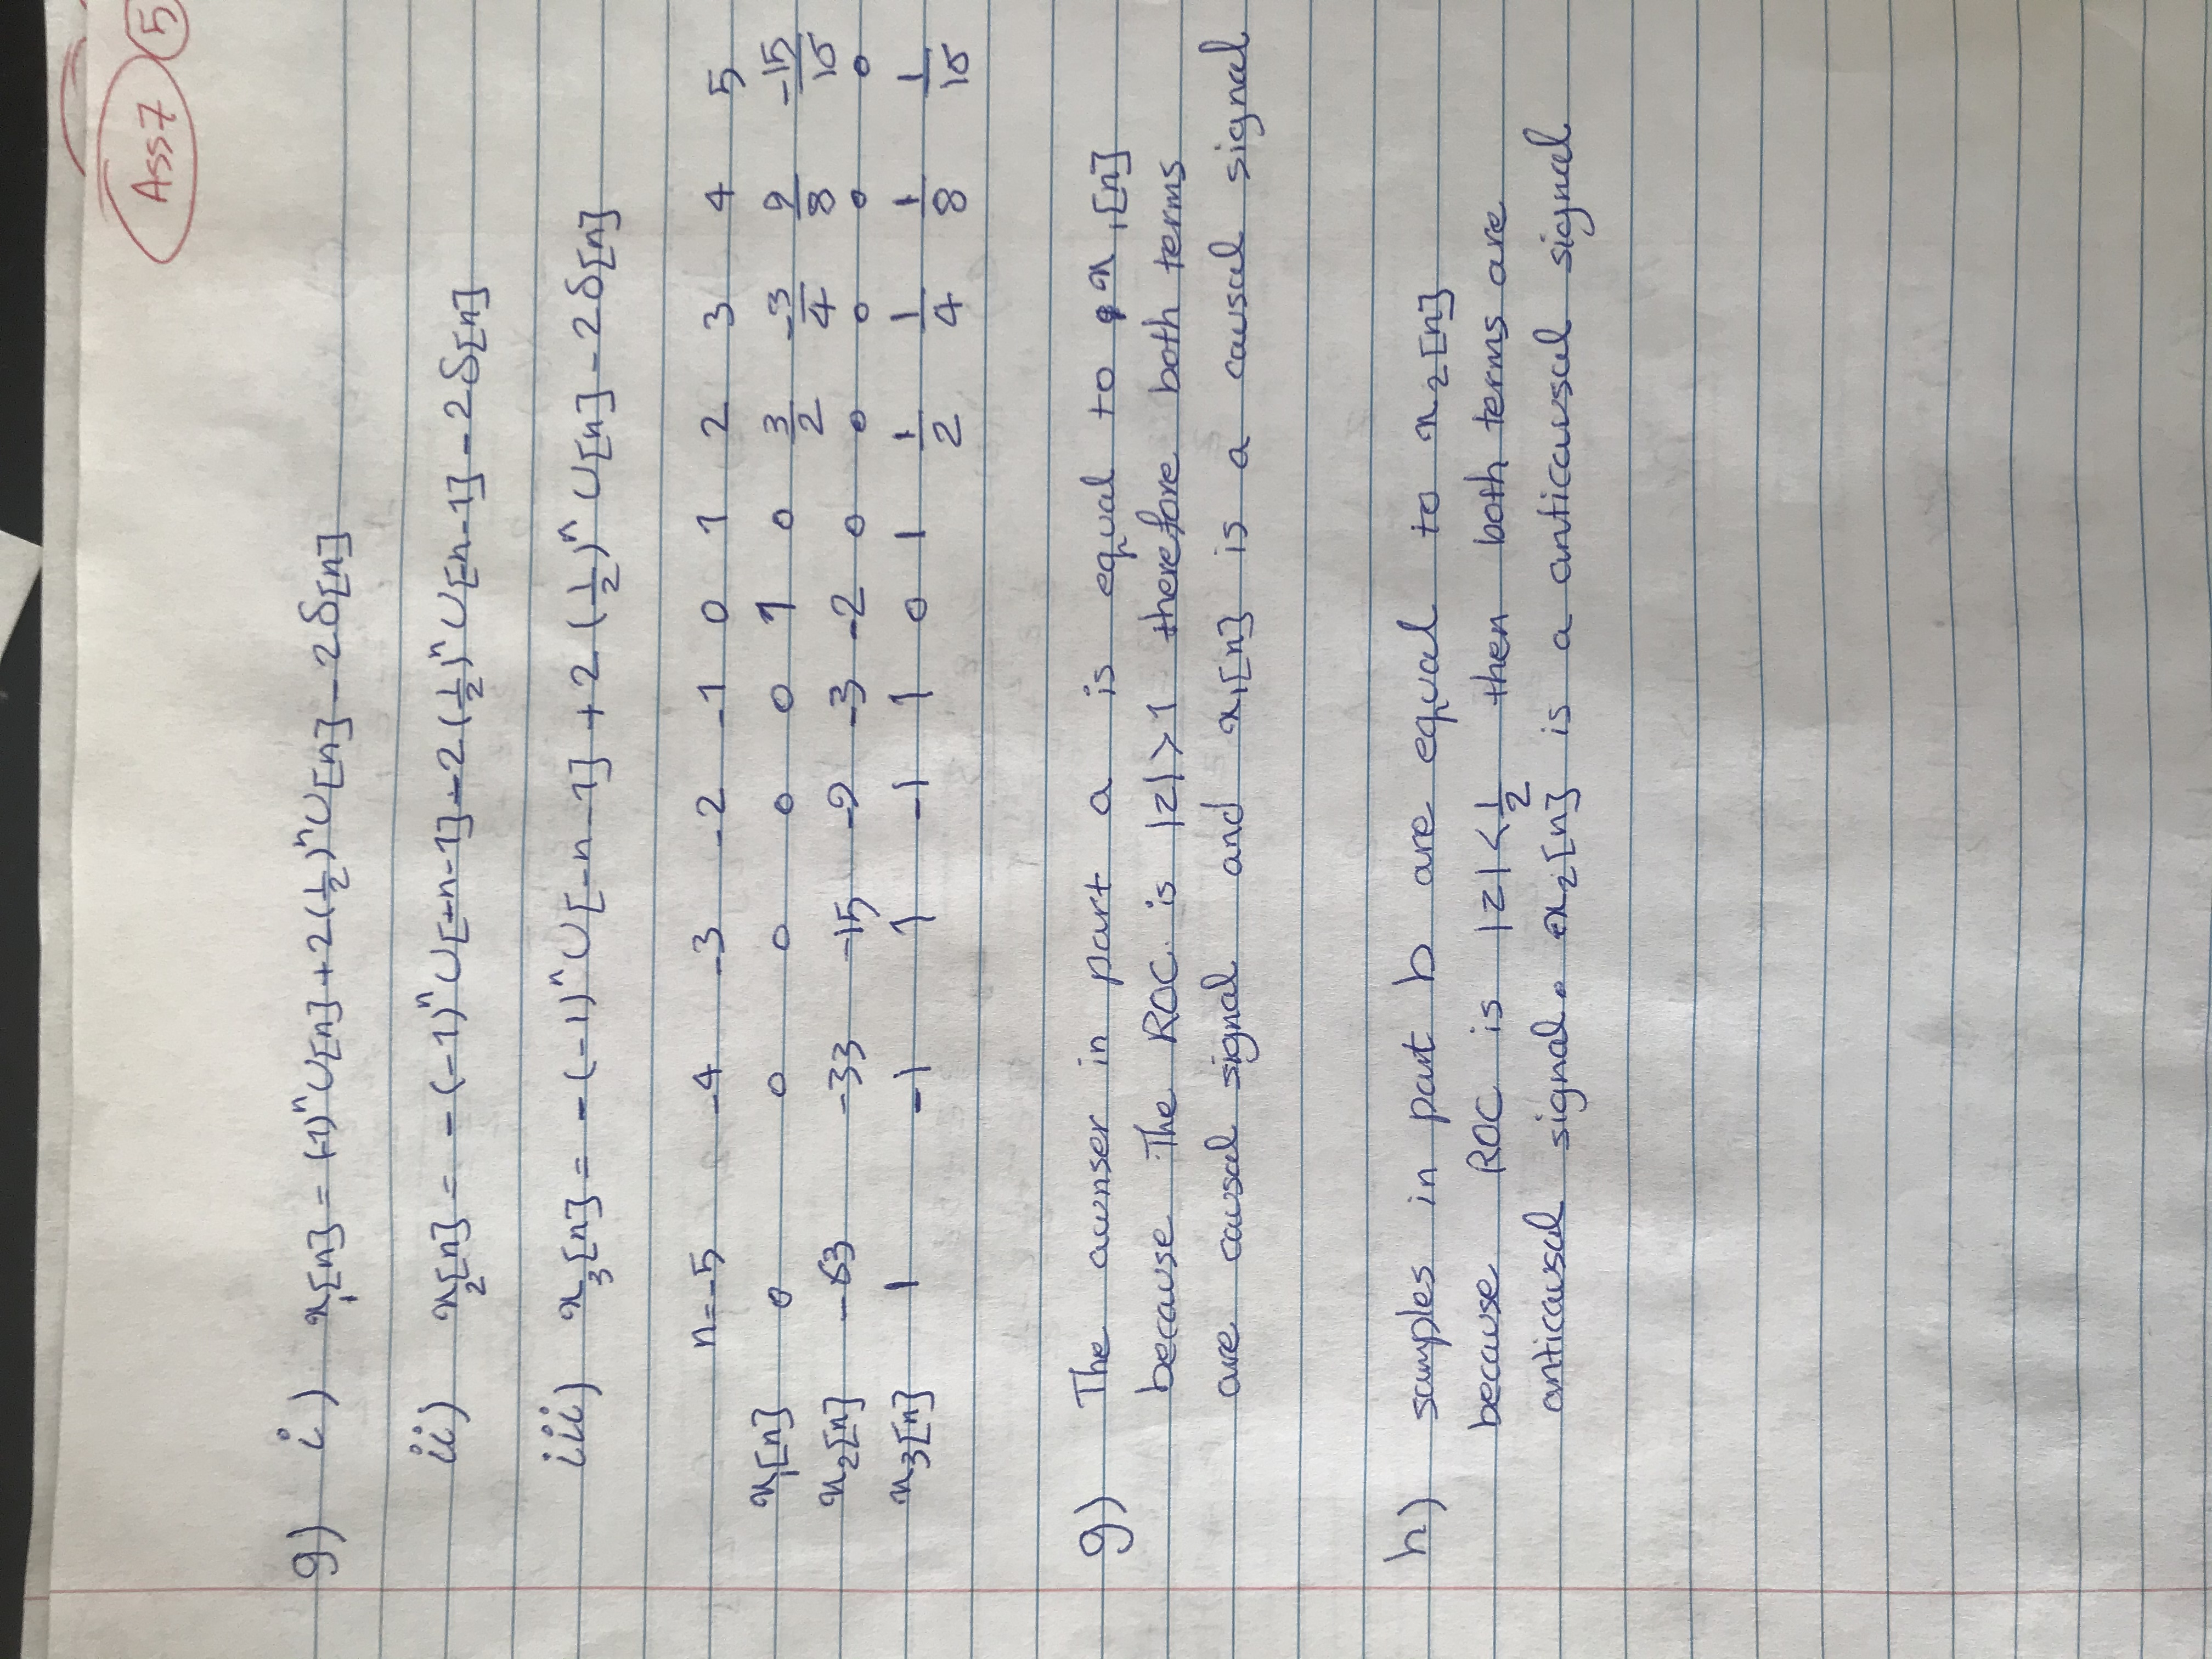 Ass7 5
g) i) x₁[n] = (-1)ⁿ U[n] + 2(1/2)ⁿ U[n] - 2δ[n]
ii) x₂[n] = -(-1)ⁿ U[-n-1] - 2(1/2)ⁿ U[-n-1] - 2δ[n]
iii) x₃[n] = -(-1)ⁿ U[-n-1] + 2(1/2)ⁿ U[n] - 2δ[n]
n=-5 -4 -3 -2 -1 0 1 2 3 4 5
x₁[n] 0 0 0 0 0 1 0 3/2 -3/4 9/8 -15/16
x₂[n] -63 -33 -15 -9 -3 -2 0 0 0 0 0
x₃[n] 1 -1 1 -1 1 0 1 1/2 1/4 1/8 1/16
g) The awnser in part a is equal to x₁[n]
because The ROC is |z|>1 therefore both terms
are causal signal and x₁[n] is a causal signal
h) samples in part b are equal to x₂[n]
because ROC is |z|<1/2 then both terms are
anticausal signal. x₂[n] is a anticausal signal